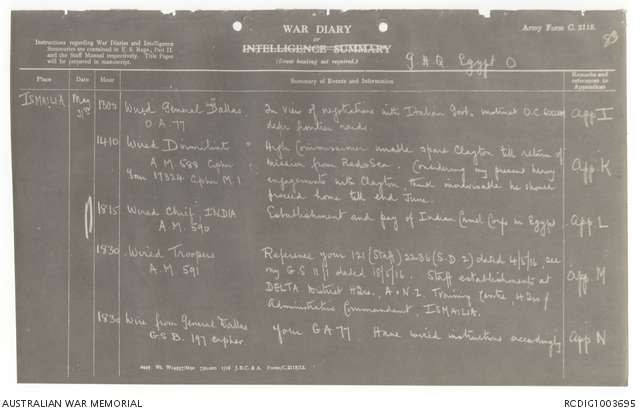 WAR DIARY
OR
INTELLIGENCE SUMMARY
(Erase heading not required.)
Army Form C. 2118.
Instructions regarding War Diaries and Intelligence
Summaries are contained in F. S. Regs., Part II.
and the Staff Manual respectively. Title Pages
will be prepared in manuscript.
G H Q Egypt
Place
Date
Hour
Summary of Events and Information
Remarks and
references to
Appendices
ISMAILIA May 1300 Wired General Dallas In view of negotiations with Italian Govt. instruct O.C.
O A 77 frontier raids. App I
1410 Wired High Commissioner unable spare Clayton till return of
A.M. 589 Cipher mission from Red Sea. Considering my present heavy
Your 17324 Cipher M.1 engagements with Clayton, think he should
proceed home till end June. App K
1815 Wired Chief, INDIA Establishment and pay of Indian Camel Corps in Egypt App L
A.M. 590
1830 Wired Troopers Reference your 121 (Staff) 2236 (S.D 2) dated 4/5/16, see
A.M. 591 my G.S 11/1 dated 18/5/16. Staff establishments at
DELTA District Hdrs., A & N Z. Training Centre, Hdrs of
Administrative Commandant, ISMAILIA. App. M
1830 Wire from General Dallas your GA 77. Have wired instructions accordingly App N
G S B. 197 cipher.
AUSTRALIAN WAR MEMORIAL
RCDIG1003695